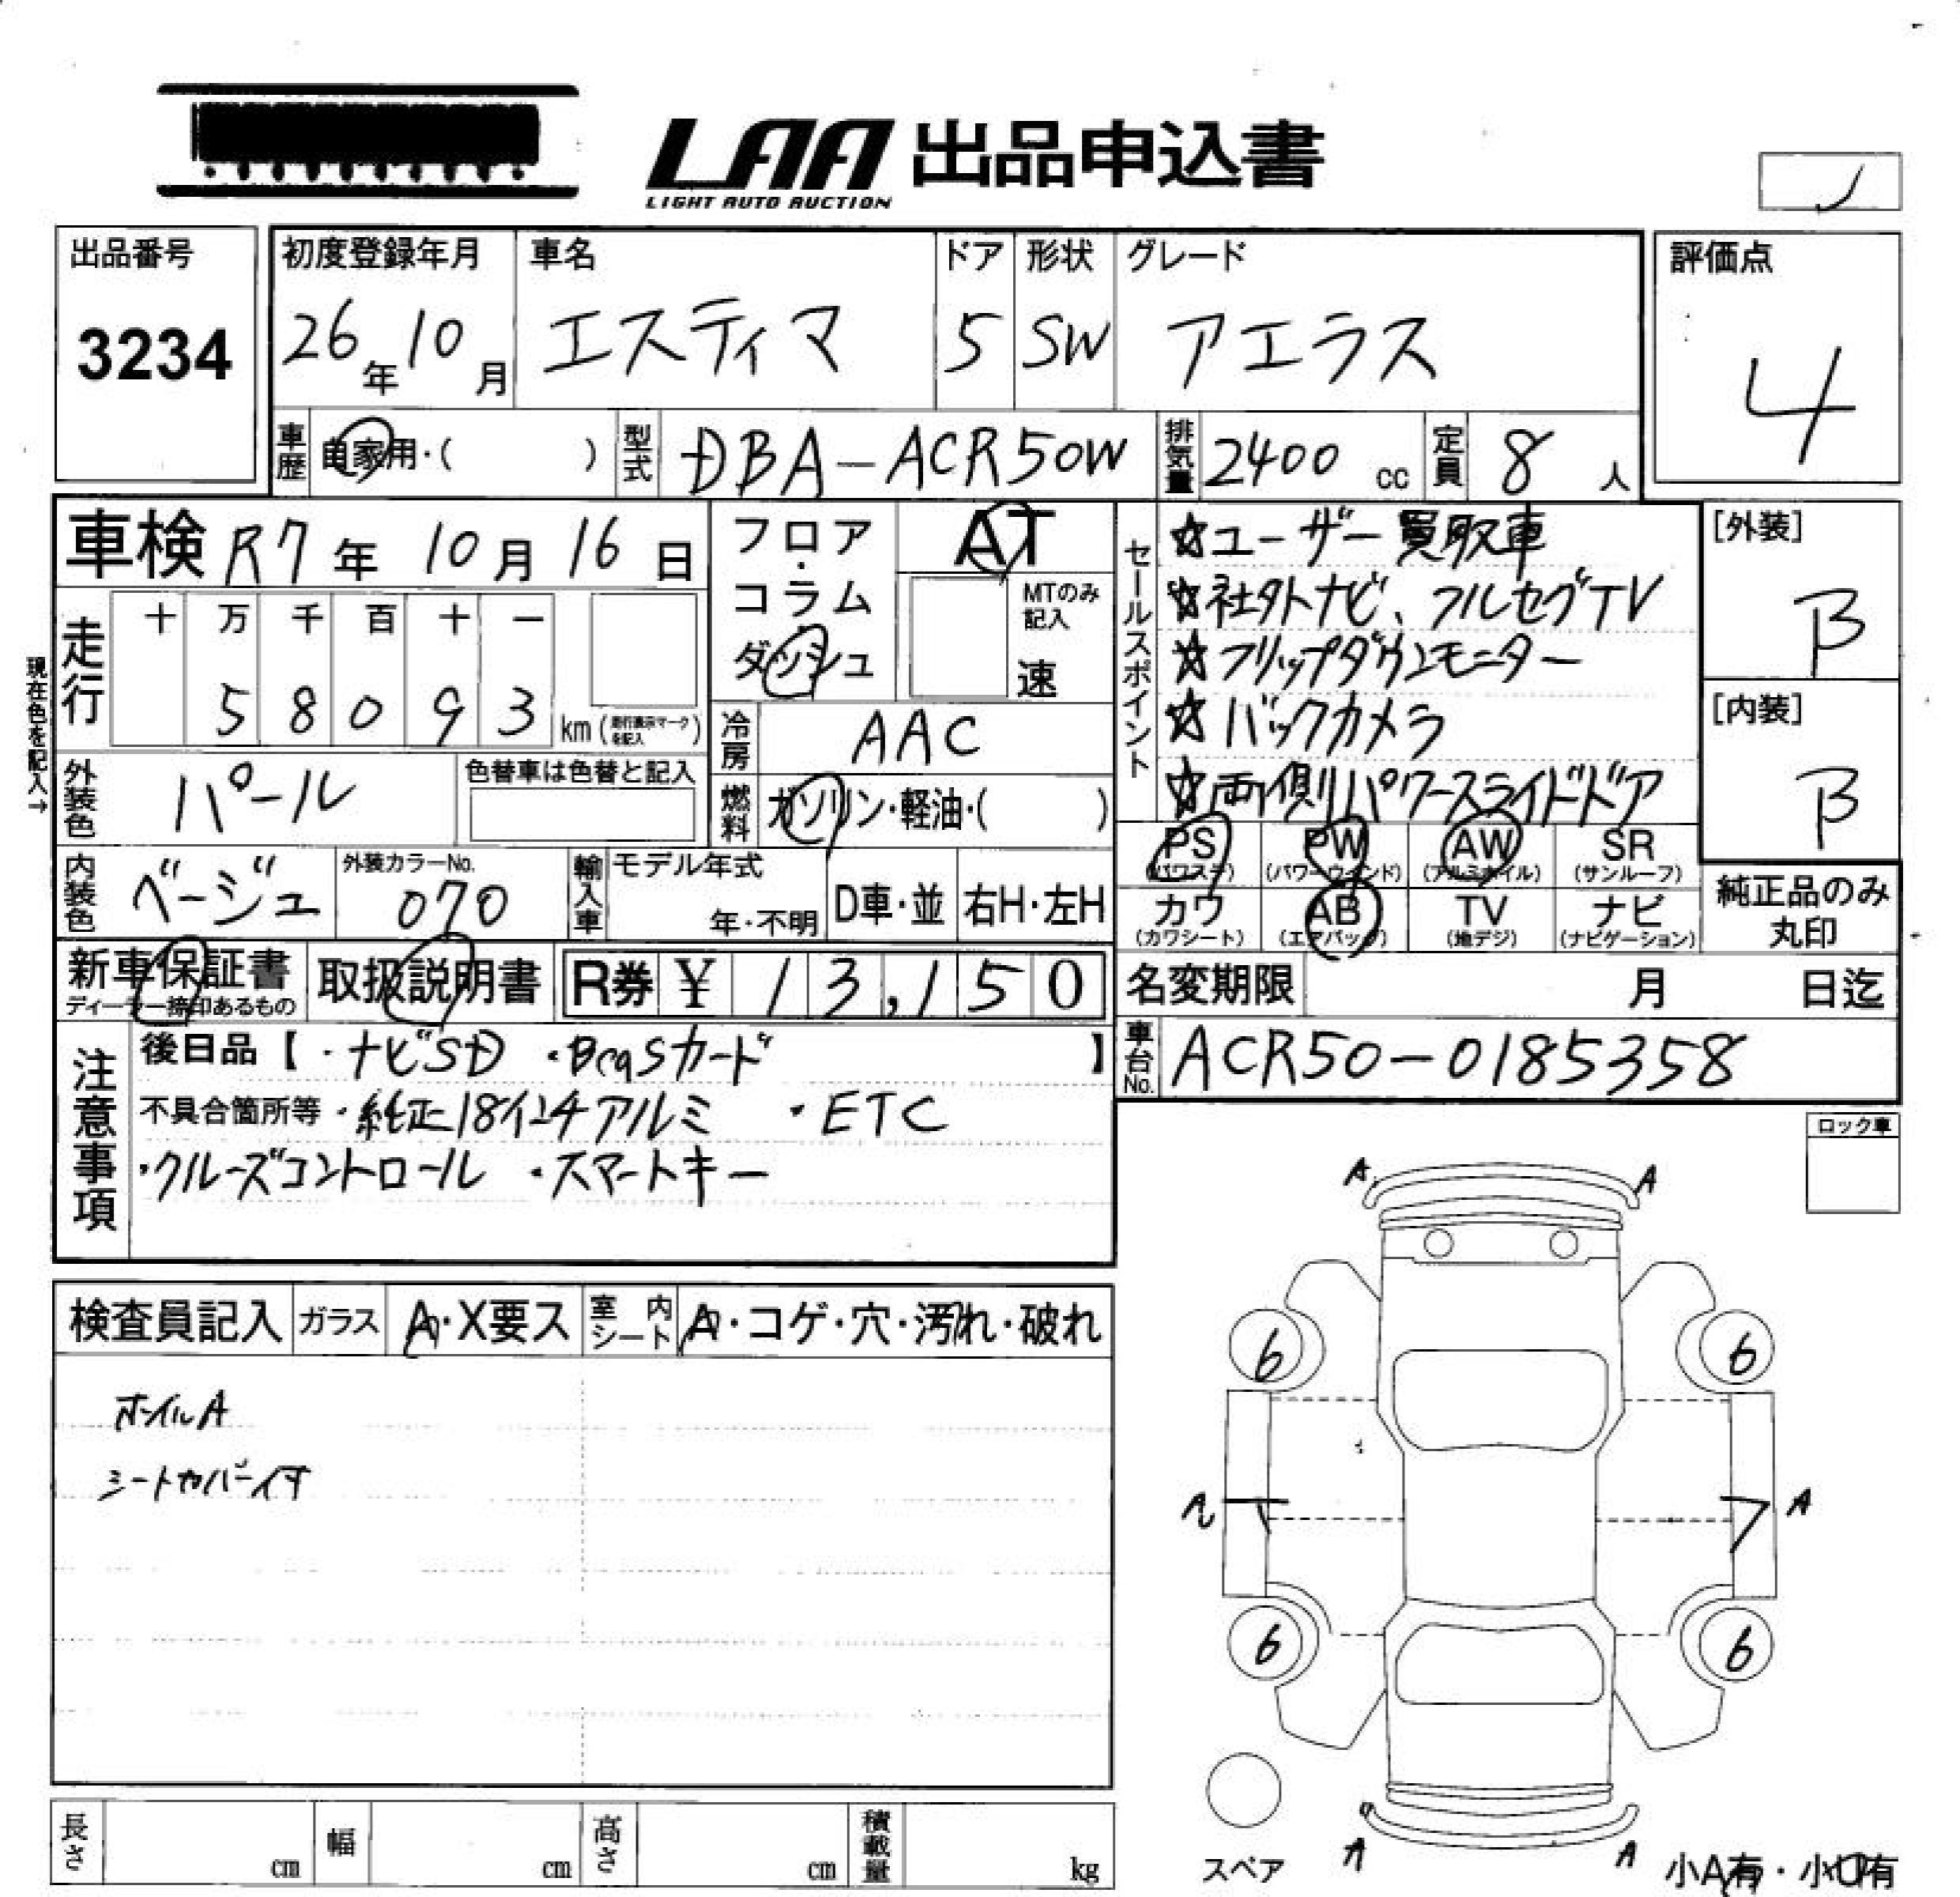 LAA 出品申込書
LIGHT AUTO AUCTION
出品番号
3234
初度登録年月 車名 ドア 形状 グレード
26年10月 エスティマ 5 SW アエラス
評価点
4
車歴 自家用・( ) 型式 DBA-ACR50W 排気量 2400 cc 定員 8 人
車検 R7年 10月 16日
フロア・コラム・ダッシュ
AT
MTのみ記入
速
走行 十 万 千 百 十 一
5 8 0 9 3 km (走行表示マークを記入)
現在色を記入→
冷房 AAC
外装色 パール 色替車は色替と記入
燃料 ガソリン・軽油・( )
内装色 ベージュ 外装カラーNo. 070
輸入車 モデル年式 年・不明 D車・並 右H・左H
セールスポイント
☆ユーザー買取車
☆社外ナビ、フルセグTV
☆フリップダウンモニター
☆バックカメラ
☆両側パワースライドドア
[外装]
B
[内装]
B
PS (パワステ) PW (パワーウインド) AW (アルミホイル) SR (サンルーフ)
カワ (カワシート) AB (エアバッグ) TV (地デジ) ナビ (ナビゲーション)
純正品のみ丸印
新車保証書 ディーラー捺印あるもの 取扱説明書 R券 ¥ 13,150
名変期限 月 日迄
車台No. ACR50-0185358
注意事項
後日品【・ナビSD ・BcasカードI】
不具合箇所等・純正18インチアルミ ・ETC
・クルーズコントロール ・スマートキー
ロック車
検査員記入 ガラス A・X要ス 室内シート A・コゲ・穴・汚れ・破れ
ホイルA
シートカバー付
A A
6 6
A
6 6
A A
スペア
小A有・小U有
長さ cm 幅 cm 高さ cm 積載量 kg